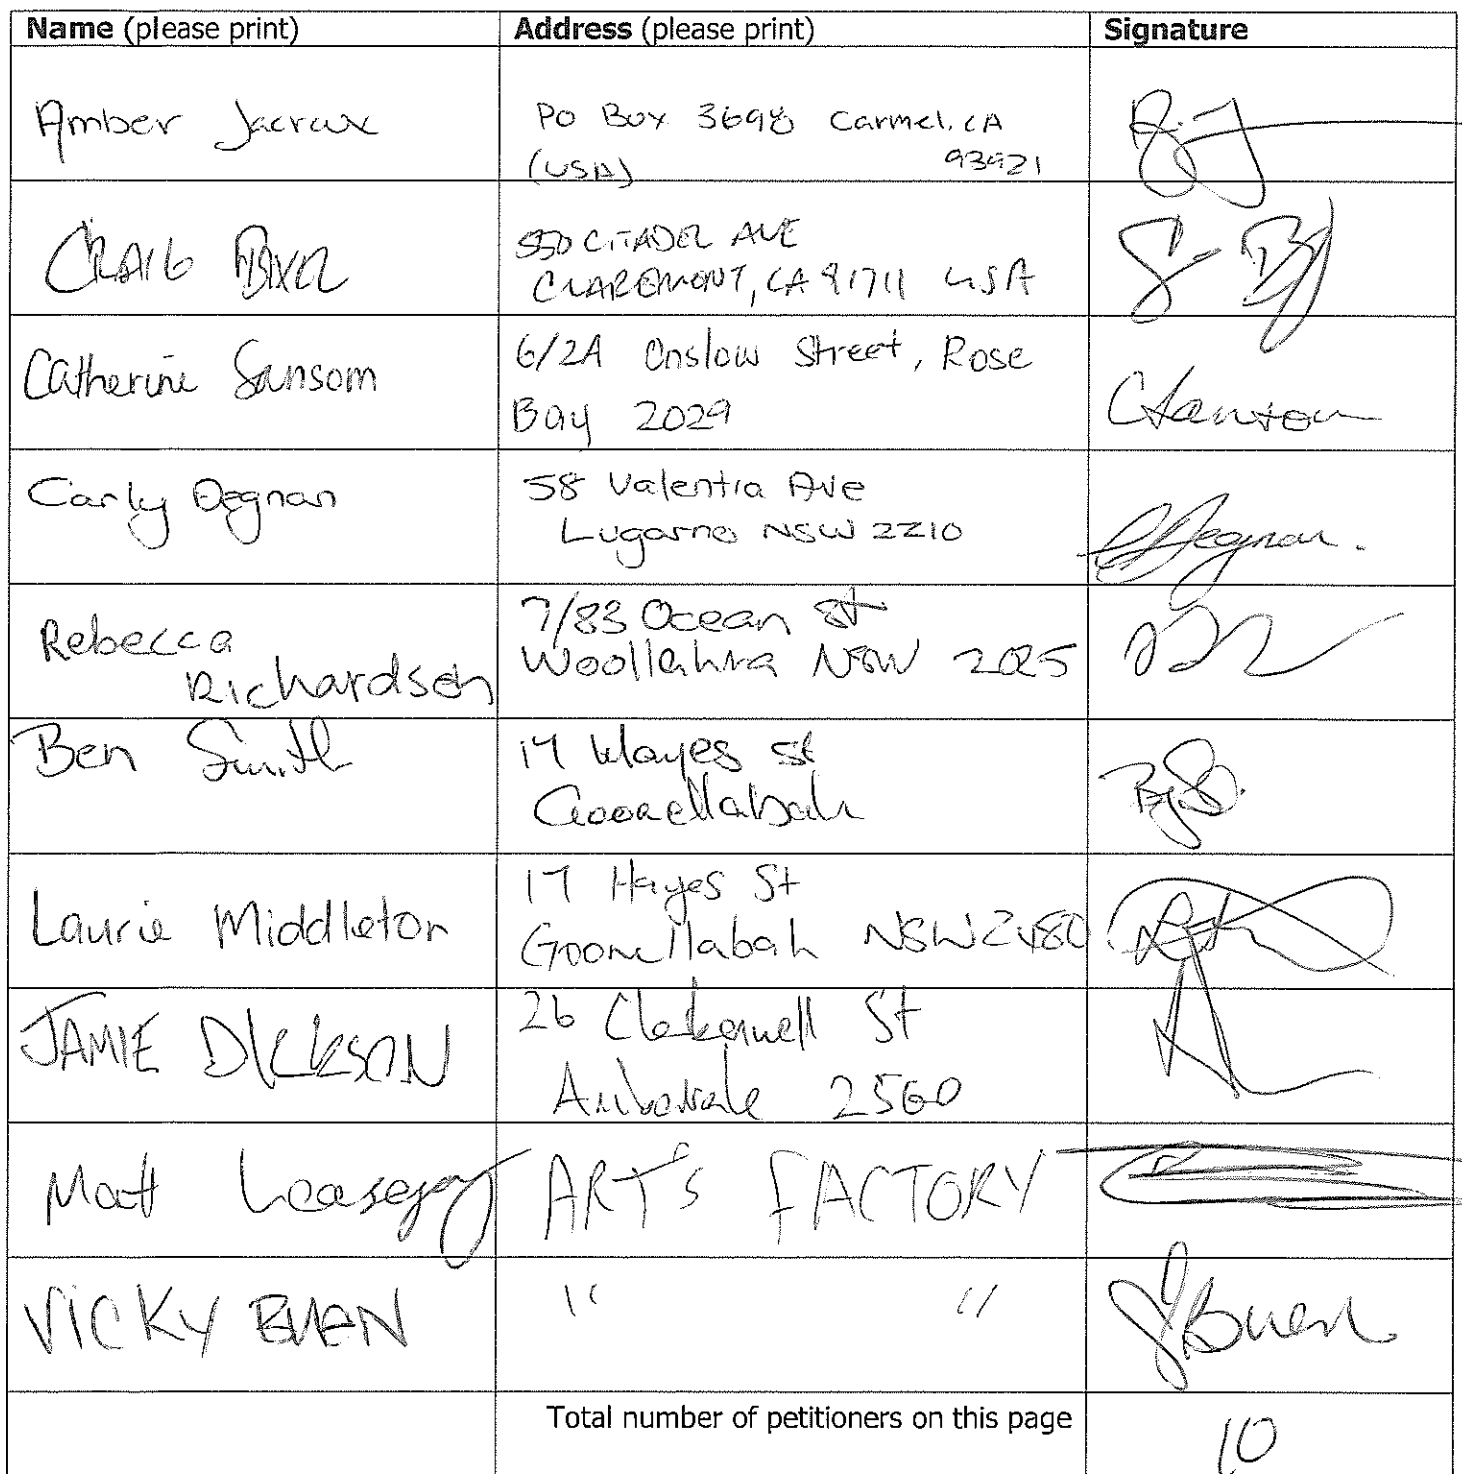 Name (please print) Address (please print) Signature
Amber Jacraux PO Box 3698 Carmel, CA
(USA) 93921
CRAIG 550 CITADEL AVE
CLAREMONT, CA 91711 USA
Catherine Sansom 6/2A Onslow Street, Rose
Bay 2029 CSansom
Carly Degnan 58 Valentia Ave
Lugarno NSW 2210 CDegnan.
Rebecca 7/83 Ocean st
Richardson Woollahra NSW 2025
Ben Smith 17 Hayes st
Goonellabah
Laurie Middleton 17 Hayes St
Goonellabah NSW 2480
JAMIE DICKSON 26 St
2560
Matt ART'S FACTORY
VICKY BUEN " " Buen
Total number of petitioners on this page 10